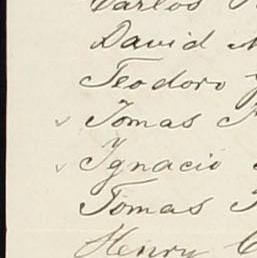 Carlos
David
Teodoro
Tomas
Ignacio
Tomas
Henry